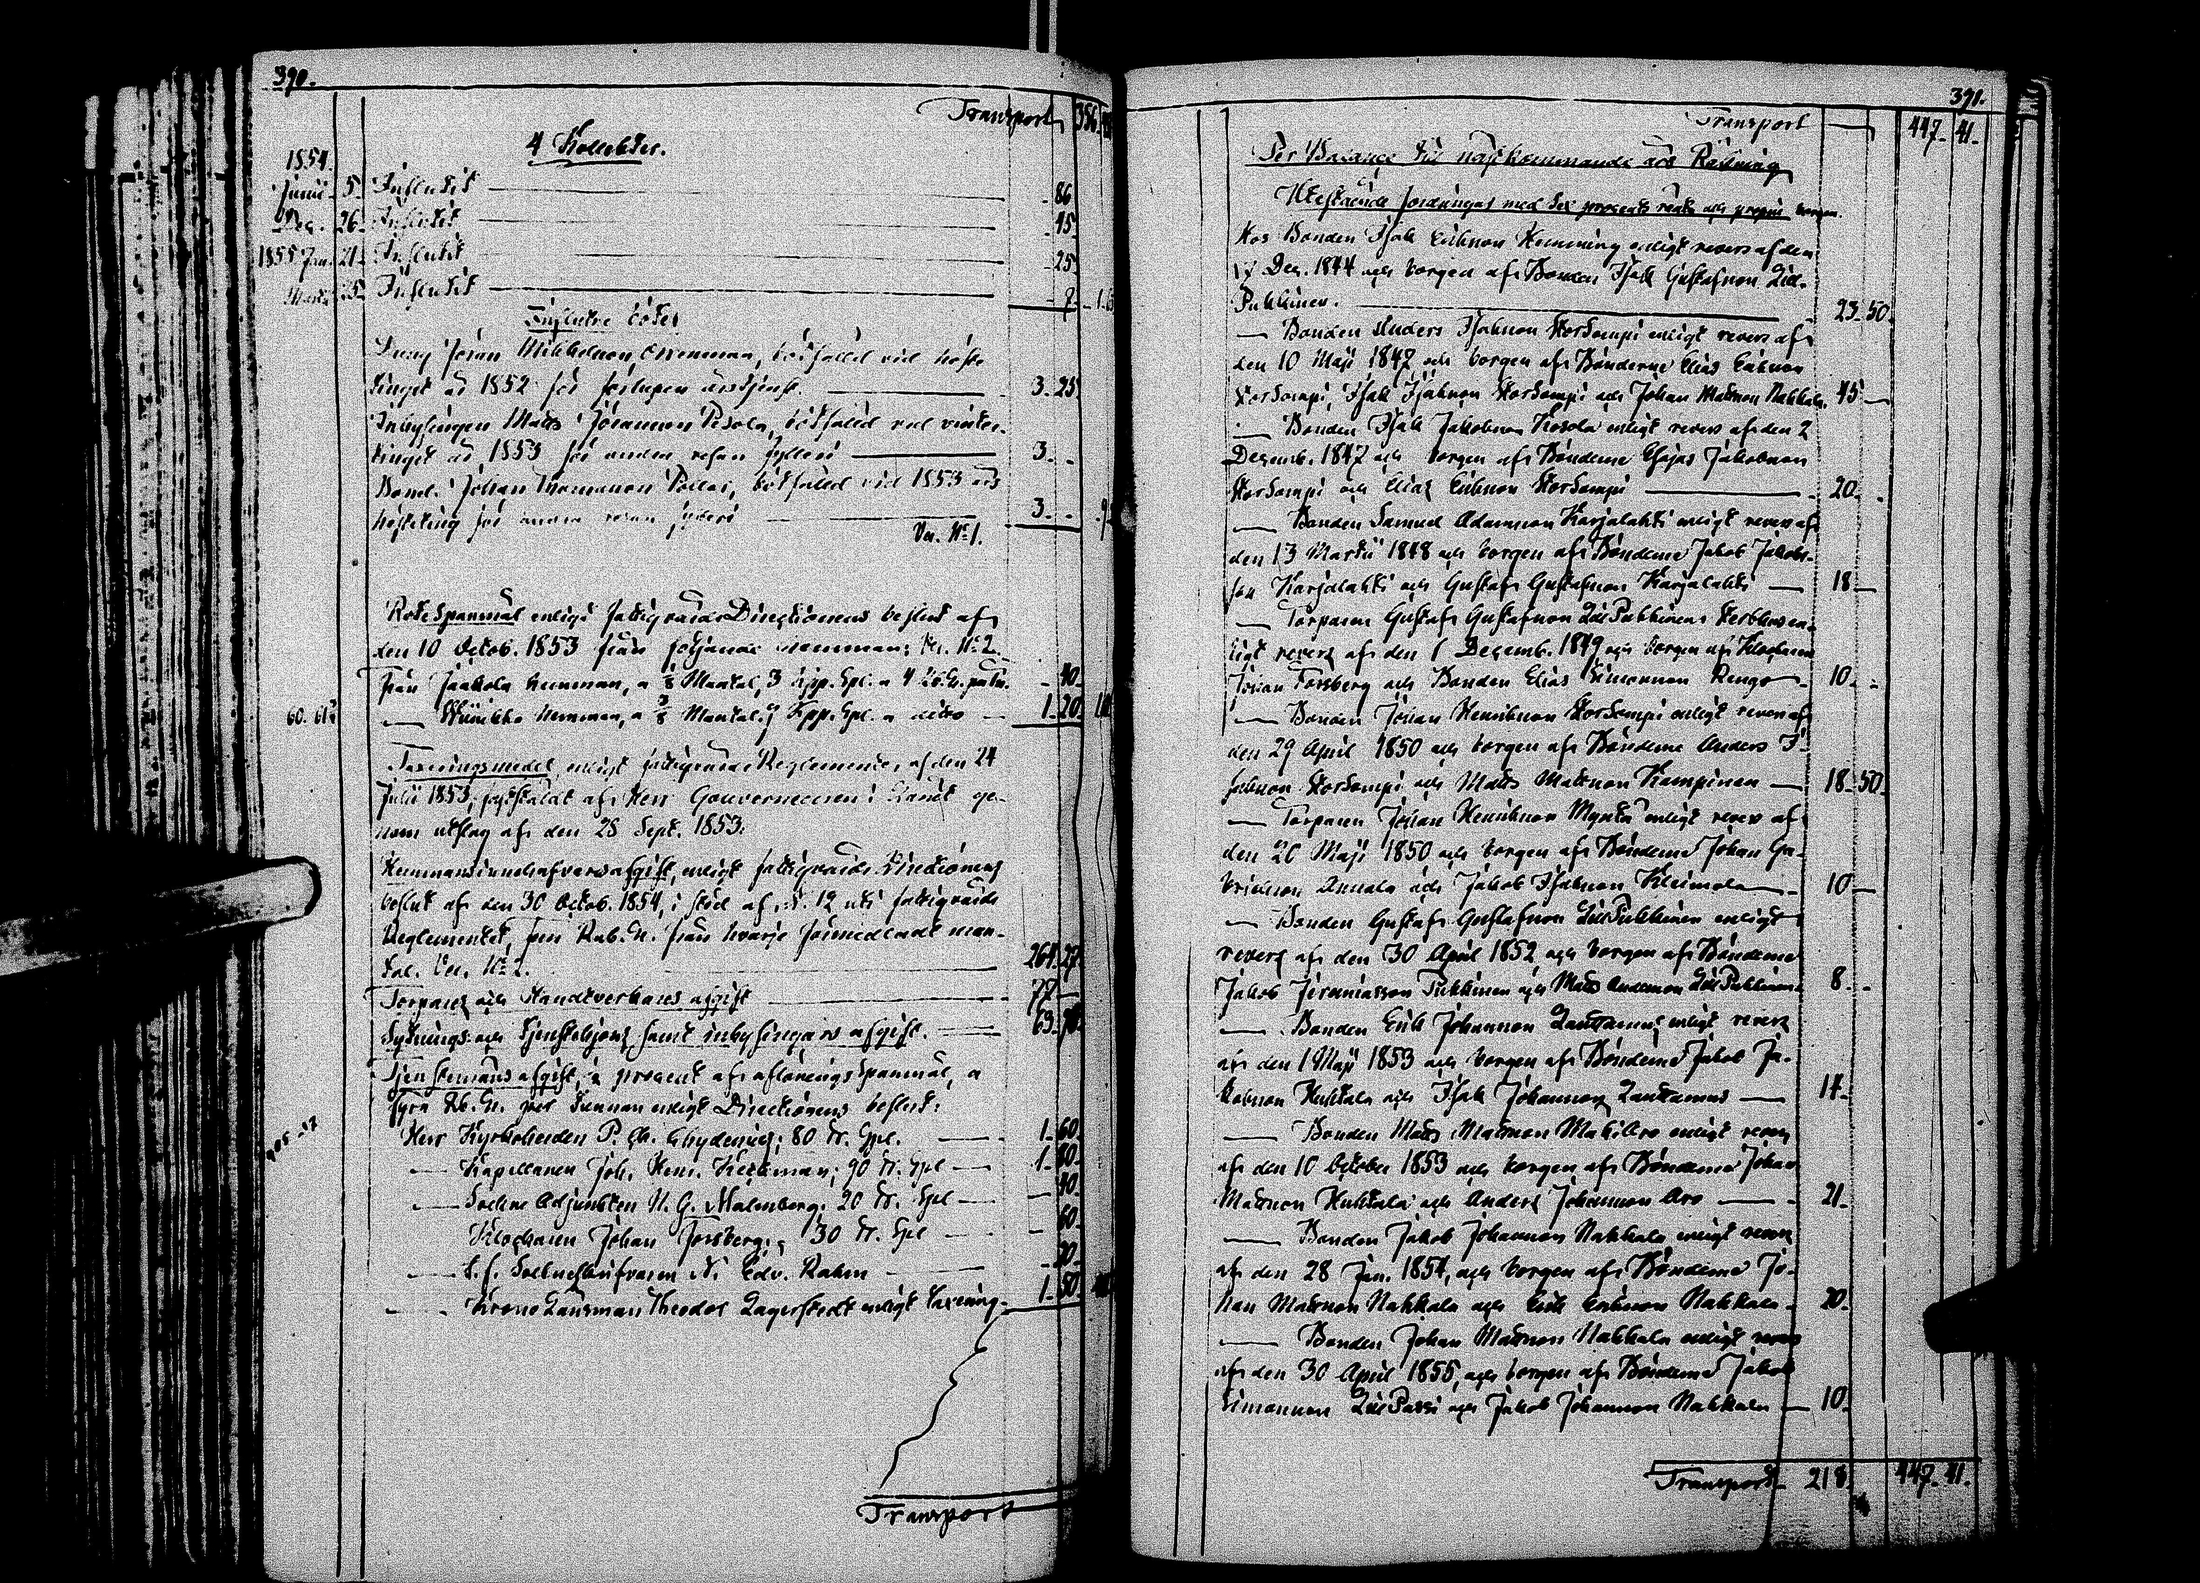 390.
Transport 356
4 Kollekter.
1854.
Junii 5. Influtit 86
Dec. 26. Influtit 45
1855 Jan. 21. Influtit 25
Martii 25. Influtit
Influtne böter
Dräng Johan Mikkelsson, bötfälld vid höste
tinget år 1852 för årstjenst. 3. 25
Inhysingen Matts Johansson Pesola, bötfälld vid vinter-
tinget år 1853 för andra resan fylleri 3. -
Bond. Johan Thomasson bötfälld vid 1853 års
hösteting för andra resan fylleri 3. -
Ver. N:o 1.
Rotespanmål enligt fattigvårds Directionens beslut af
den 10 Octob. 1853 från hemman; Ver. N:o 2.
från Jaakola hemman, a Mantal, 3 Kpp. Spl. a 4 40
60. 61 hemman, a 3/8 Mantal, 9 Kpp. Spl. a dito 1. 20
Taxeringsmedel, enligt fattigvårds Reglemente, af den 24
Julii 1853, fastställdt af Herr Gouverneuren i Länet ge-
nom utslag af den 28 Sept. 1853.
Hemmansinnehafvares afgift, enligt fattigvårds Directionens
beslut af den 30 Octob. 1854, i stöd af §. 12 uti fattigvårds
Reglementet, fem Rub. Sr. från hvarje förmedladt man-
tal. Ver. N:o 2. 264. 27
Torpares och Handtverkares afgift 77
Sytnings- och tjenstehjons samt inhysingars afgift. 63.
Tjenstemäns afgift, procent af aflöningsspanmål, a
fyra Rb. Sr. per tunnan enligt Directionens beslut:
Herr Kyrkoherden P. Chydenius; 80 tr. Spl. 1. 60
Kapellanen Joh. Henr. Keckman; 90 tr. Spl 1. 80
Sockne Adjunkten N. G. Malmberg; 20 tr. Spl 40
Klockaren Johan Forsberg; 30 tr. Spl 60
t. f. Sockneskrifvaren N. Edv. Rahm 20
Krono Länsman Theodor Lagerstedt enligt taxering 1. 50
Transport
391.
Transport 447. 41.
Per Balance till nästkommande års Räkning
Utestående fordringar med sex procents ränta och proprie borgen.
Hos Bonden Isak Eriksson Hemming enligt revers af den
Dec. 1844 och borgen af Bonden Isak Gustafsson Lill-
Pukkinen. 23. 50
— Bonden Anders Isaksson Storkampi enligt revers af
den 10 Maji 1847 och borgen af Bönderne Elias Eriksson
Storkampi, Isak Isaksson Storkampi och Johan Matsson Nahkala 45
— Bonden Isak Jakobsson Kosola enligt revers af den 2
Decemb. 1847 och borgen af Bönderne Esajas Jakobsson
Storkampi och Elias Eriksson Storkampi 20.
— Bonden Samuel Adamsson Karjalahti enligt revers af
den 13 Martii 1848 och borgen af Bönderne Jakob Jakobs-
son Karjalahti och Gustaf Gustafsson Karjalahti 18
— Torparen Gustaf Gustafsson LillPukkinens Sterbhus en-
ligt revers af den 1 Decemb. 1849 och borgen af Klockaren
Johan Forsberg och Bonden Elias Simonsson Rengo 10.
— Bonden Johan Henriksson Storkampi enligt revers af
den 29 April 1850 och borgen af Bönderne Anders I-
saksson Storkampi och Matts Matsson Kampinen 18. 50
— Torparen Johan Henriksson Myntä enligt revers af
den 20 Maji 1850 och borgen af Bönderne Johan Ga-
brielsson Annala och Jakob Isaksson Kleimola 10
— Bonden Gustaf Gustafsson LillPukkinen enligt
revers af den 30 April 1852 och borgen af Bönderne
Jakob Jeremiasson Pukkinen och Matts Andersson LillPukkinen 8.
— Bonden Erik Johansson Lautamus enligt revers
af den 1 Maji 1853 och borgen af Bönderne Jakob Ja-
kobsson Huhtala och Isak Johansson Lautamus 14.
— Bonden Matts Matsson MäkiAro enligt revers
af den 10 October 1853 och borgen af Bönderne Johan
Matsson Huhtala och Anders Johansson Aro 21.
— Bonden Jakob Johansson Nahkala enligt revers
af den 28 Jan. 1854, och borgen af Bönderne Jo-
han Matsson Nahkala och Erik Eriksson Nahkala 20.
— Bonden Johan Matsson Nahkala enligt revers
af den 30 April 1855, och borgen af Bönderne Jakob
Simonsson LillPassi och Jakob Johansson Nahkala 10.
Transport 218 447. 41.